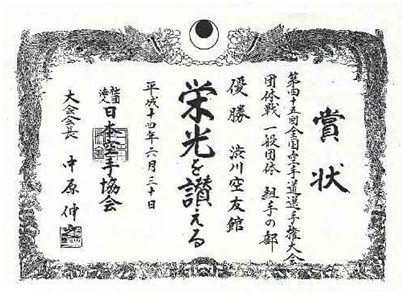 賞状
第四十五回全国空手道選手権大会
団体戦 一般団体 組手の部
優勝 渋川空友館
栄光を讃える
平成十四年六月三十日
社団法人 日本空手協会
大会会長 中原伸